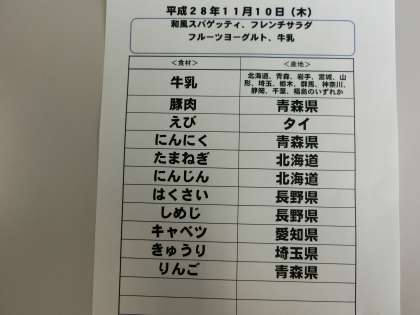 平成28年11月10日（木）
和風スパゲッティ、フレンチサラダ
フルーツヨーグルト、牛乳
＜食材＞ ＜産地＞
牛乳 北海道、青森、岩手、宮城、山
形、埼玉、栃木、群馬、神奈川、
静岡、千葉、福島のいずれか
豚肉 青森県
えび タイ
にんにく 青森県
たまねぎ 北海道
にんじん 北海道
はくさい 長野県
しめじ 長野県
キャベツ 愛知県
きゅうり 埼玉県
りんご 青森県